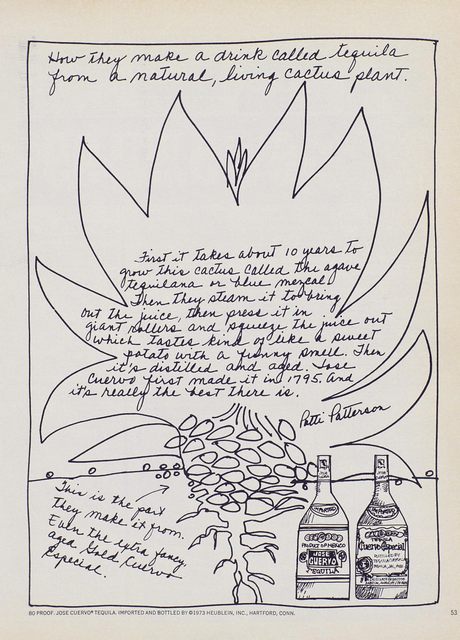 How they make a drink called tequila
from a natural, living cactus plant.
First it takes about 10 years to
grow this cactus called the agave
tequilana or blue mezcal.
Then they steam it to bring
out the juice, then press it in
giant rollers and squeeze the juice out
which tastes kind of like a sweet
potato with a funny smell. Then
it's distilled and aged. Jose
Cuervo first made it in 1795. And
it's really the best there is.
Patti Patterson
This is the part
they make it from.
Even the extra fancy,
aged Gold Cuervo
Especial.
PRODUCT OF MEXICO
JOSE
CUERVO
TEQUILA
TEQUILA
Cuervo Especial
80 PROOF. JOSE CUERVO® TEQUILA. IMPORTED AND BOTTLED BY ©1973 HEUBLEIN, INC., HARTFORD, CONN.
53